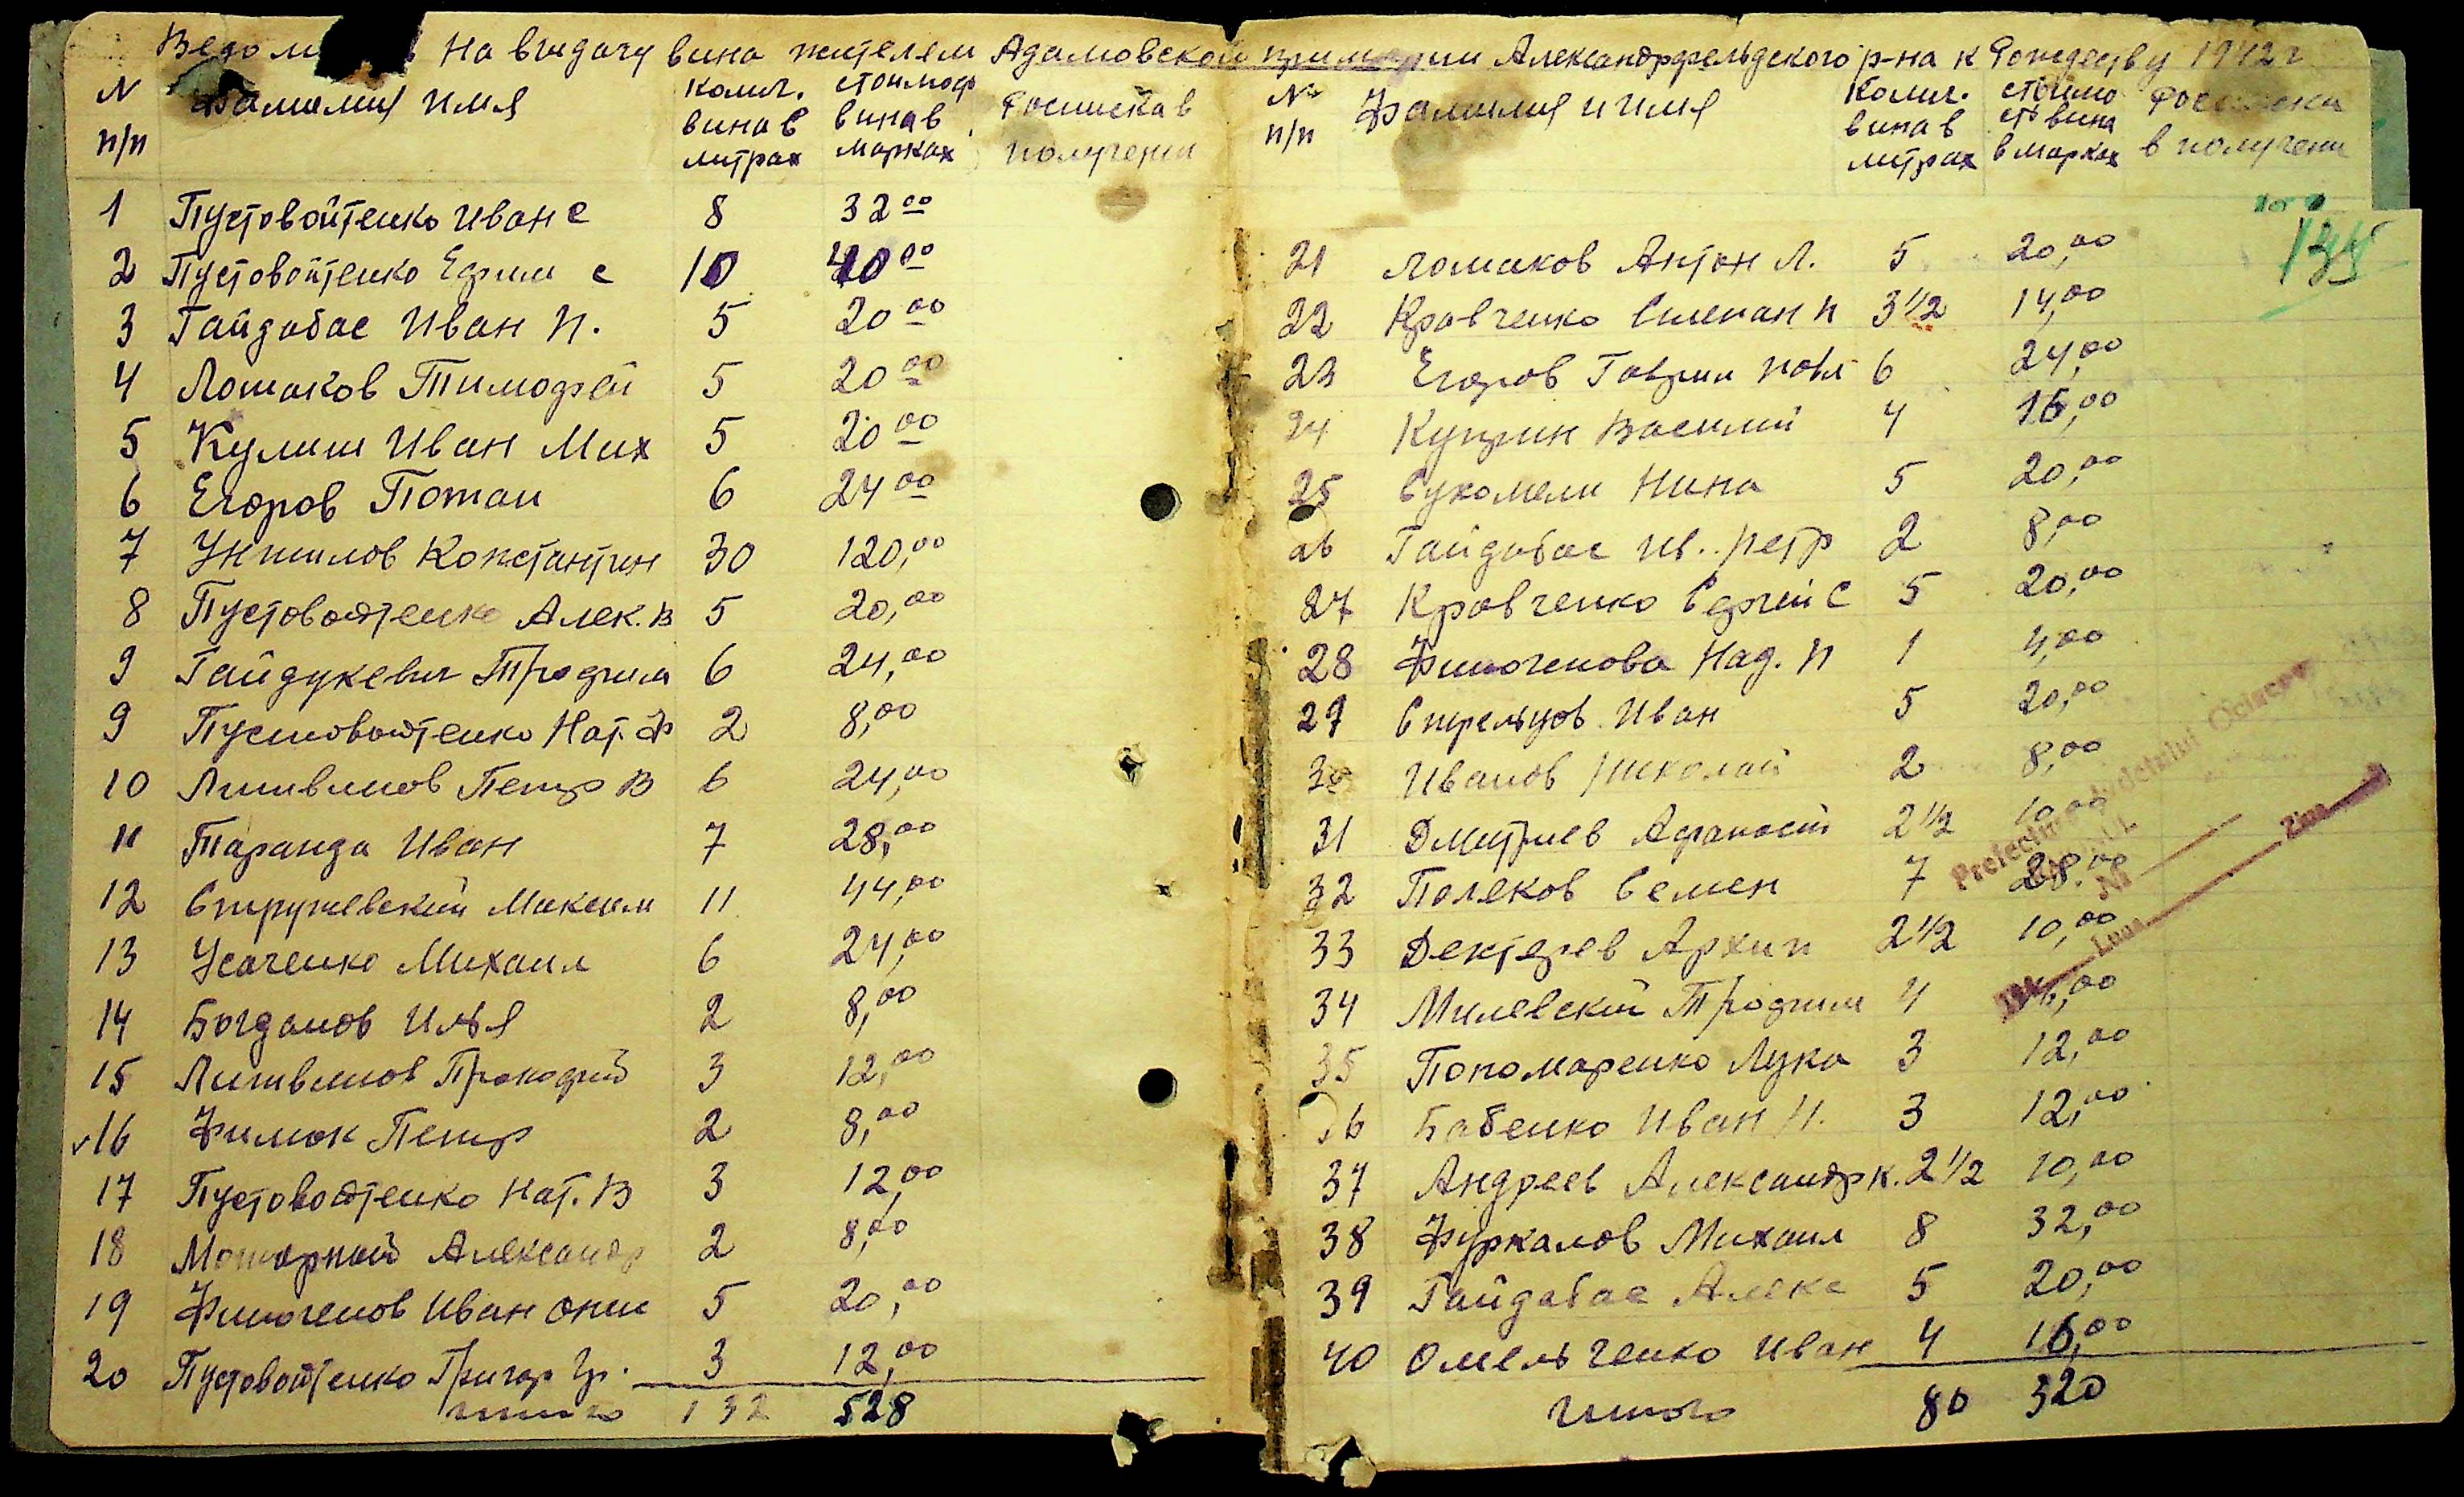 На выдачу вина жителем Адамовской примарии Александрфельдского р-на к Рождеству 1942 г
N п/п Фамилия имя Колич. вина в литрах стоимос вина в марках Росписка в получении
1 Пустовойтенко Иван С 8 32 00
2 Пустовойтенко Ефим С 10 40 00
3 Гайдабас Иван И. 5 20 00
4 Ломаков Тимофей 5 20 00
5 Кулиш Иван Мих 5 20 00
6 Егоров Потап 6 24 00
7 Константин 30 120,00
8 Пустовойтенко Алек. В 5 20,00
9 Гайдукевич Трофим 6 24,00
9 Пустовойтенко Нат. Ф 2 8,00
10 Литвинов Петр В 6 24,00
11 Таранда Иван 7 28,00
12 Стружевский Максим 11 44,00
13 Усаченко Михаил 6 24,00
14 Богданов Илья 2 8,00
15 Литвинов Прокофий 3 12,00
√16 Филюк Петр 2 8,00
17 Пустовойтенко Нат. В 3 12,00
18 Моторный Александр 2 8,00
19 Финогенов Иван 5 20,00
20 Пустовойтенко Григор Гр. 3 12,00
итого 132 528
№ п/п Фамилия и имя Колич. вина в литрах стоимо сть вина в марках Росписка в получени
21 Ломаков Антон Л. 5 20,00
22 Кравченко Степан И 3 1/2 14,00
23 Егоров Гаврил Павл 6 24,00
24 Куприн Василий 4 16,00
25 Сукомели Нина 5 20,00
26 Гайдабас Ив. Петр 2 8,00
27 Кравченко Сергий С 5 20,00
28 Финогенова Над. И 1 4,00
29 Стрельцов Иван 5 20,00
30 Иванов Николай 2 8,00
31 Дмитриев Афанасий 2 1/2 10,00
32 Поляков Семен 7 28,00
33 Дектерев Архип 2 1/2 10,00
34 Милевский Трофим 4 16,00
35 Пономаренко Лука 3 12,00
36 Бабенко Иван И. 3 12,00
37 Андреев Александр К. 2 1/2 10,00
38 Фуркалов Михаил 8 32,00
39 Гайдабас Алекс 5 20,00
40 Омельченко Иван 4 16,00
итого 80 320
Prefectura Judetului Ociacov
No
Luna Ziua
194